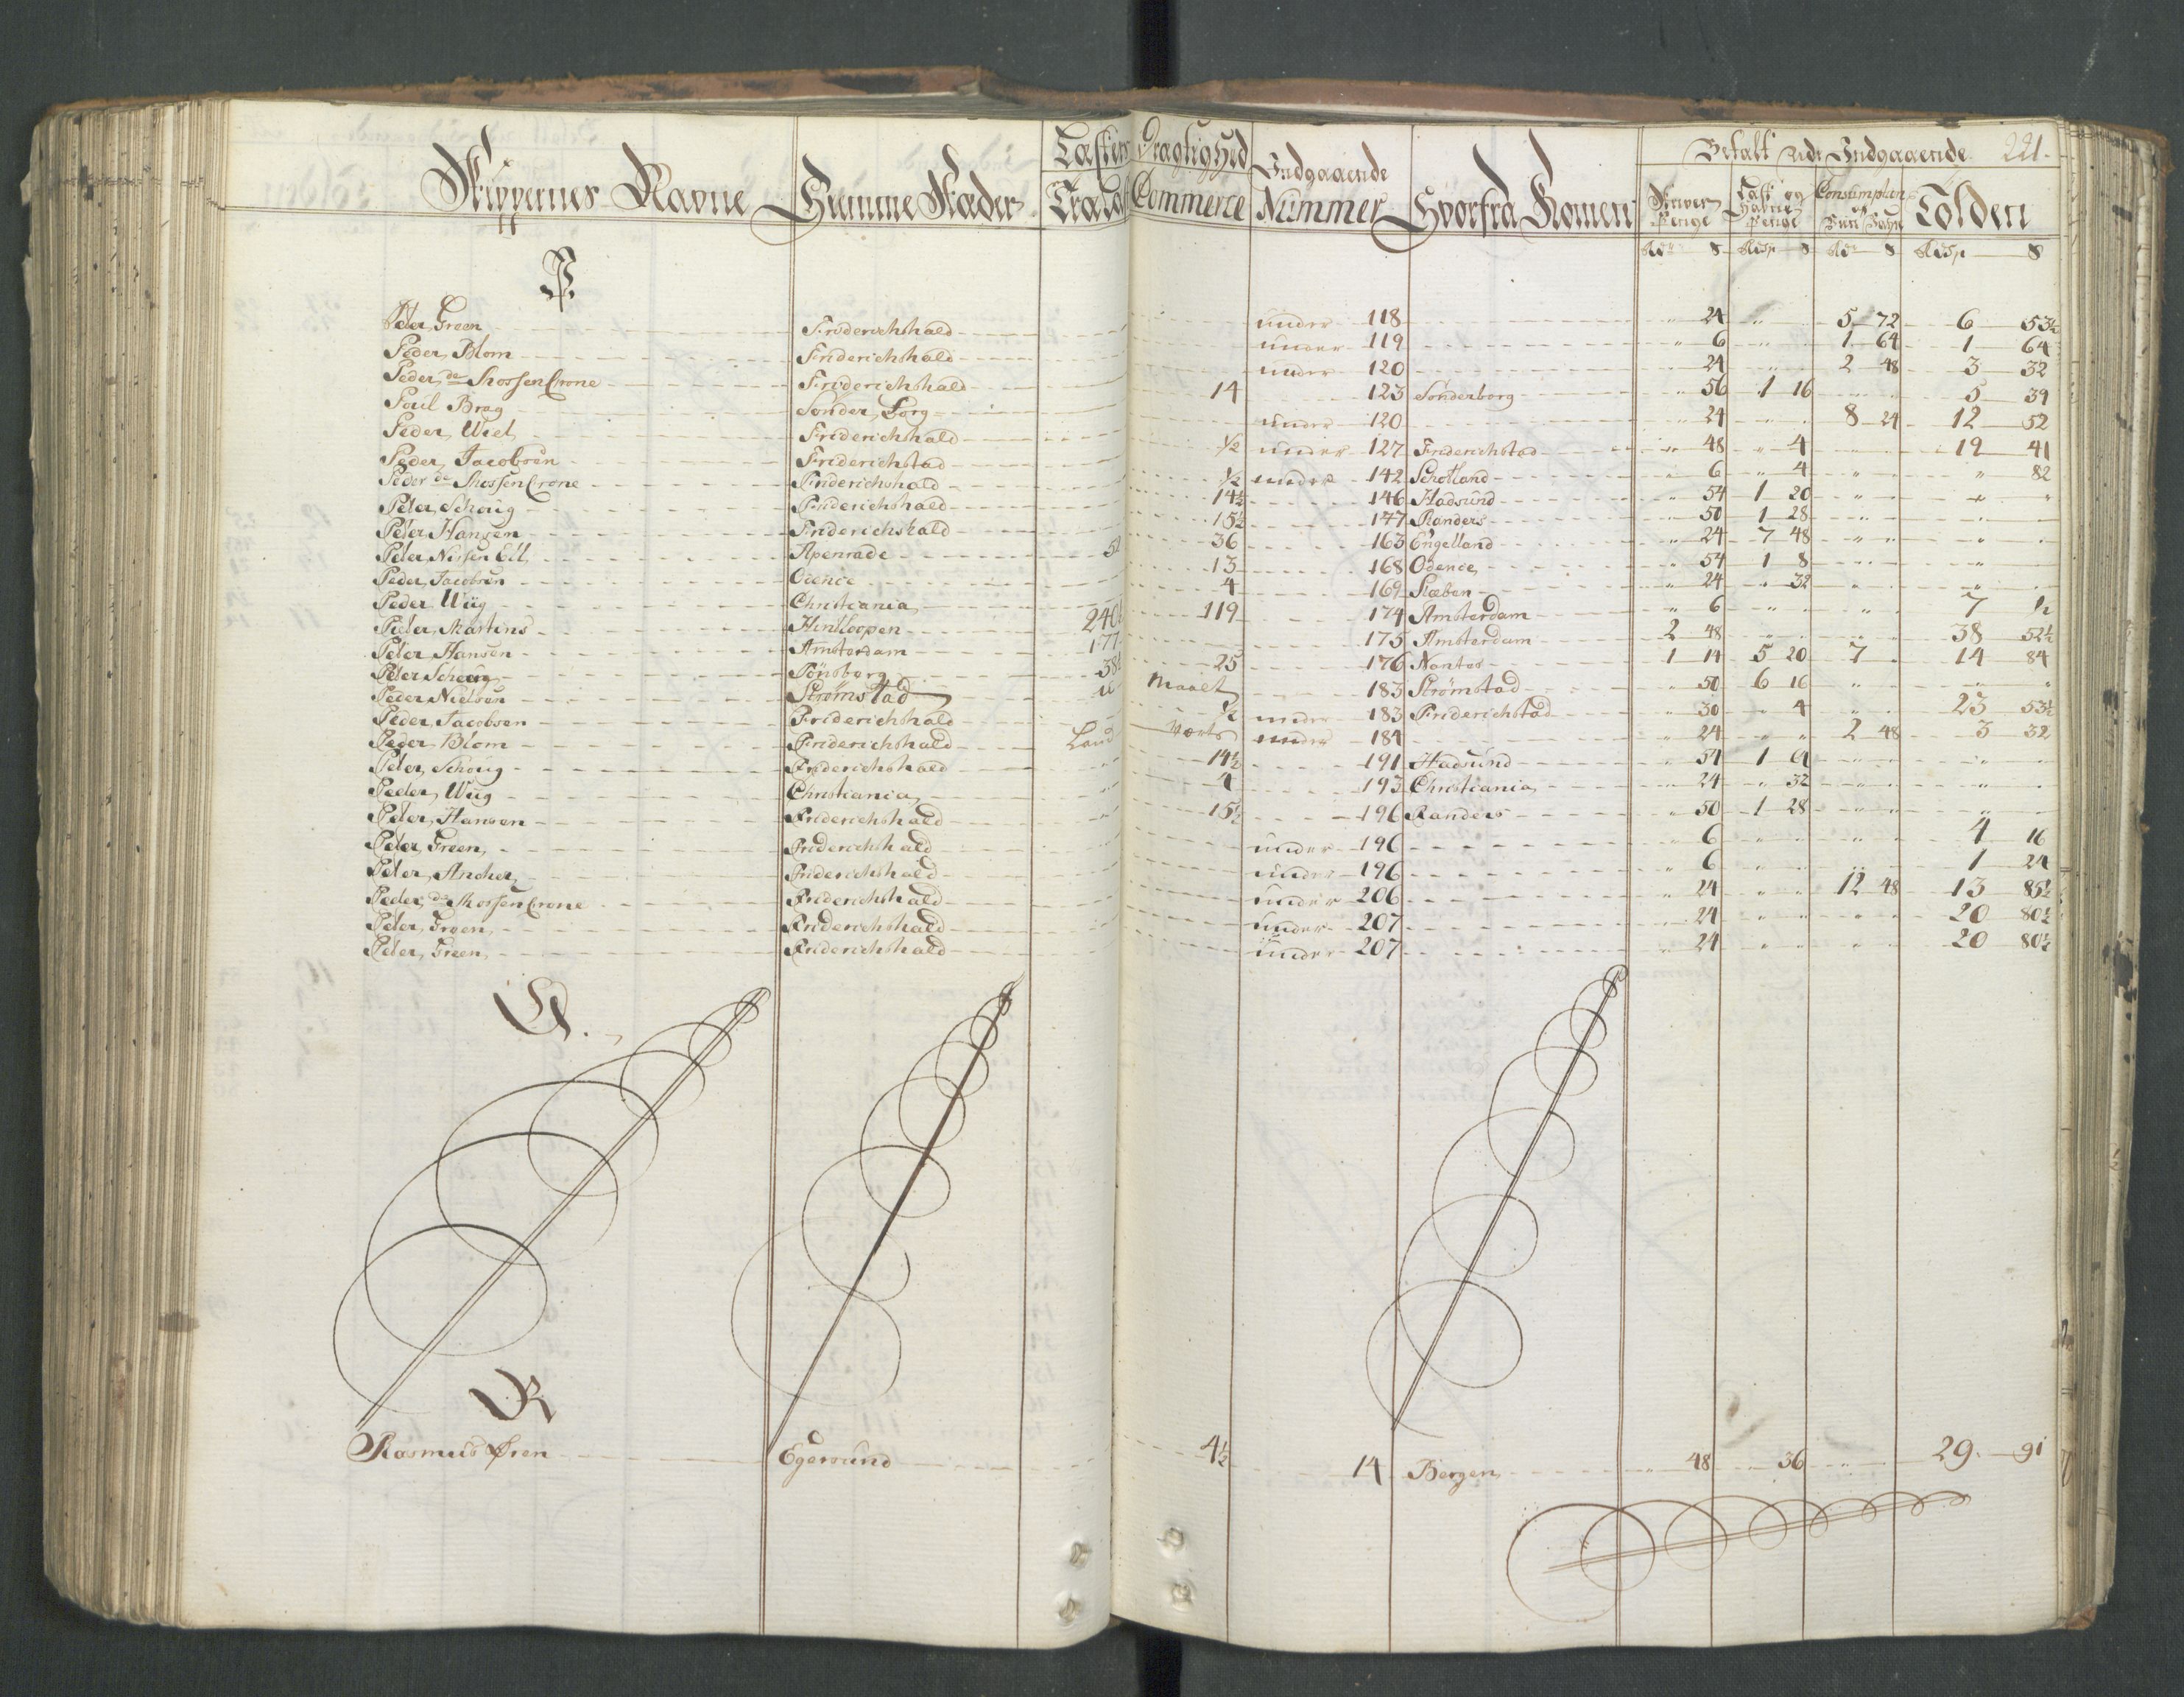 221.
Skippernes Navne Hiemme Stæder Læsters Drægtighed Indgaaende Nummer Hvorfra Kommen Betalt ved Indgaaende
Træelast Commerce Last og Havne Penge Consumption Tolden
Rdr 8 Rdr 8 Rdr 8 Rdr 8
P.
Peter Green Friderichshald under 118 " 24 " 5 72 6 53½
Peder Blom Friderichshald under 119 " 6 " 1 64 1 64
Peder de Thossen Crone Friderichshald under 120 " 24 " 2 48 3 32
Poul Brag Sønder Borg 14 123 Sønderborg " 56 1 16 5 39
Peder Wiel Friderichshald under 120 " 24 " 8 24 12 52
Peder Jacobsen Friderichstad ½ under 127 Friderichstad " 48 " 4 19 41
Peder de Thossen Crone Friderichshald ½ under 142 Schotland " 6 " 4 " 82
Peter Schøug Friderichshald 14½ 146 Hadsund " 54 1 20
Peter Hansen Friderichshald 15½ 147 Randers " 50 1 28
Peter Nissen Friderichshald Apenrade 52 36 163 Engelland " 24 7 48
Peder Jacobsen Odence 13 168 Odence " 54 1 8
Peder Wiig Christiania 4 169 " 24 " 32
Pieter Martins Hinloopen 240½ 119 174 Amsterdam " 6 7 ½
Peter Hansen Amsterdam 177 175 Amsterdam 2 48 38 52½
Peter Tønsberg 38½ 25 176 Nantes 1 14 5 20 7 14 84
Peder Nielsen Strømstad u Maalt 183 Strømstad " 50 6 16
Peder Jacobsen Friderichshald ½ under 183 Friderichstad " 30 " 4 23 53½
Peder Blom Friderichshald Land Værts under 184 " 24 " 2 48 3 32
Peter Schøug Friderichshald 14½ 191 Hadsund " 54 1
Peder Wiig Christiania 4 193 Christiania " 24 " 32
Peter Hansen Friderichshald 15½ 196 Randers " 50 1 28
Peter Green Friderichshald under 196 " 6 4 16
Peter Ancher Friderichshald under 196 " 6 1 24
Peder de Thossen Crone Friderichshald under 206 " 24 " 12 48 13 85½
Peter Green Friderichshald under 207 " 24 20 80½
Peter Green Friderichshald under 207 " 24 20 80½
Q.
R
Rasmus Øren Egersund 4½ 14 Bergen " 48 36 29 91